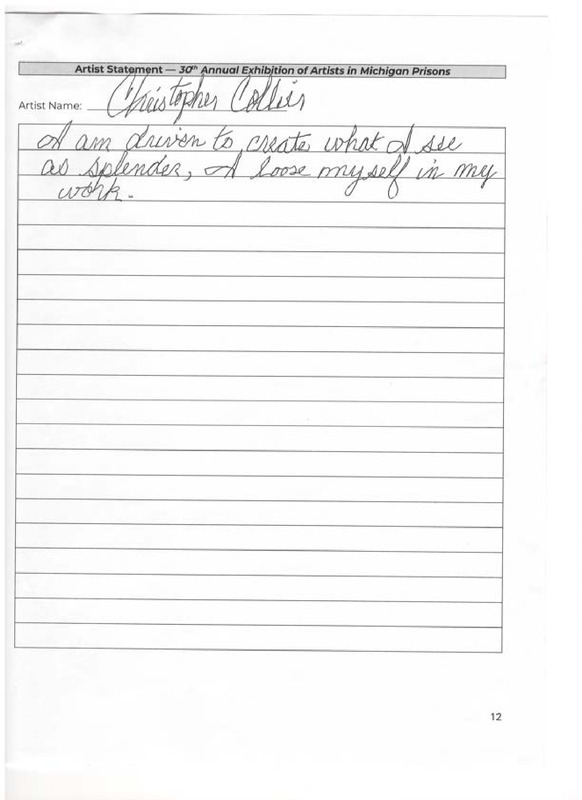 Artist Statement — 30th Annual Exhibition of Artists in Michigan Prisons
Artist Name: Christopher Collier
I am driven to create what I see
as splender, I loose myself in my
work.
12